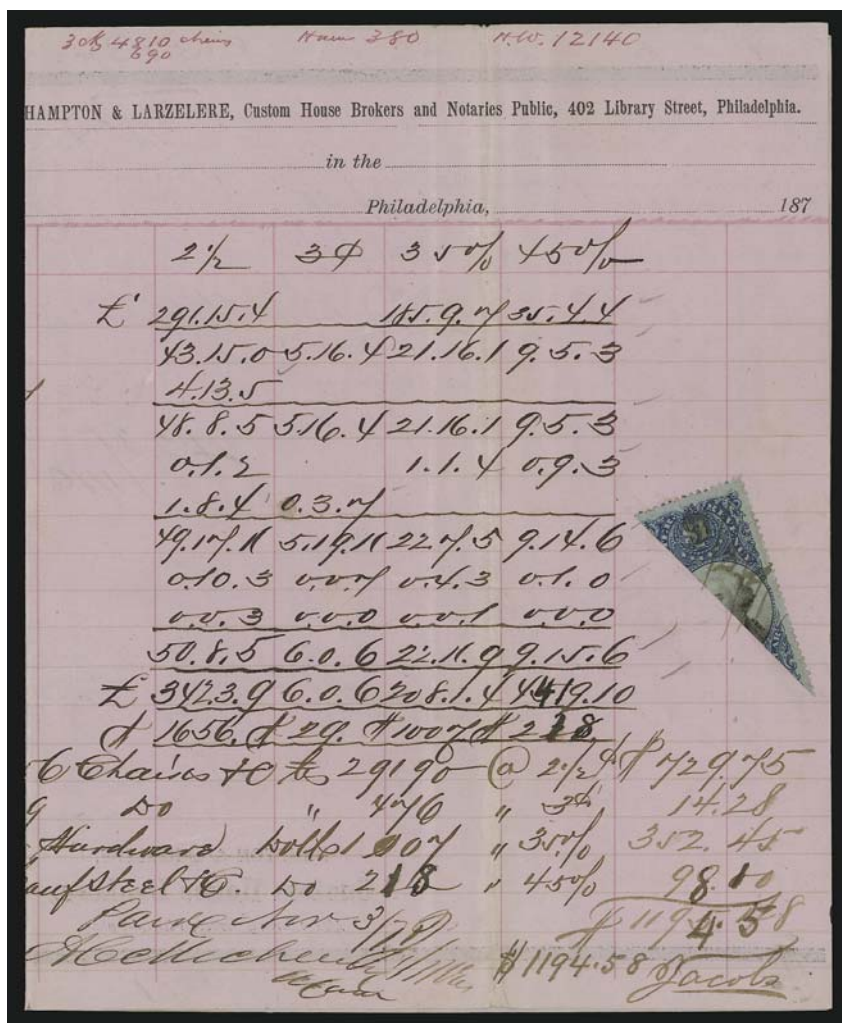 3 ck 4810 chains Ham 380 N.W. 12140
690
HAMPTON & LARZELERE, Custom House Brokers and Notaries Public, 402 Library Street, Philadelphia.
in the
Philadelphia, 187
2½ 3¢ 35% 45%
£ 291.15.4 185.9.7 35.4.4
43.15.0 5.16.4 21.16.1 9.5.3
4.13.5
48.8.5 5.16.4 21.16.1 9.5.3
0.1.2 1.1.4 0.9.3
1.8.4 0.3.7
49.17.11 5.19.11 22.7.5 9.14.6
0.10.3 0.0.7 0.4.3 0.1.0
0.0.3 0.0.0 0.0.1 0.0.0
50.8.5 6.0.6 22.11.9 9.15.6
£ 342.3.9 6.0.6 208.1.4 44.19.10
$ 1656. $ 29. $ 1007 $ 218
6 Chains &C lbs 29190 @ 2½¢ $ 729.75
9 Do " 476 " 3¢ 14.28
Hardware Dolls 1007 " 35% 352.45
auf Steel &C. Do 218 " 45% 98.10
$ 1194.58
$ 1194.58 Jacobs